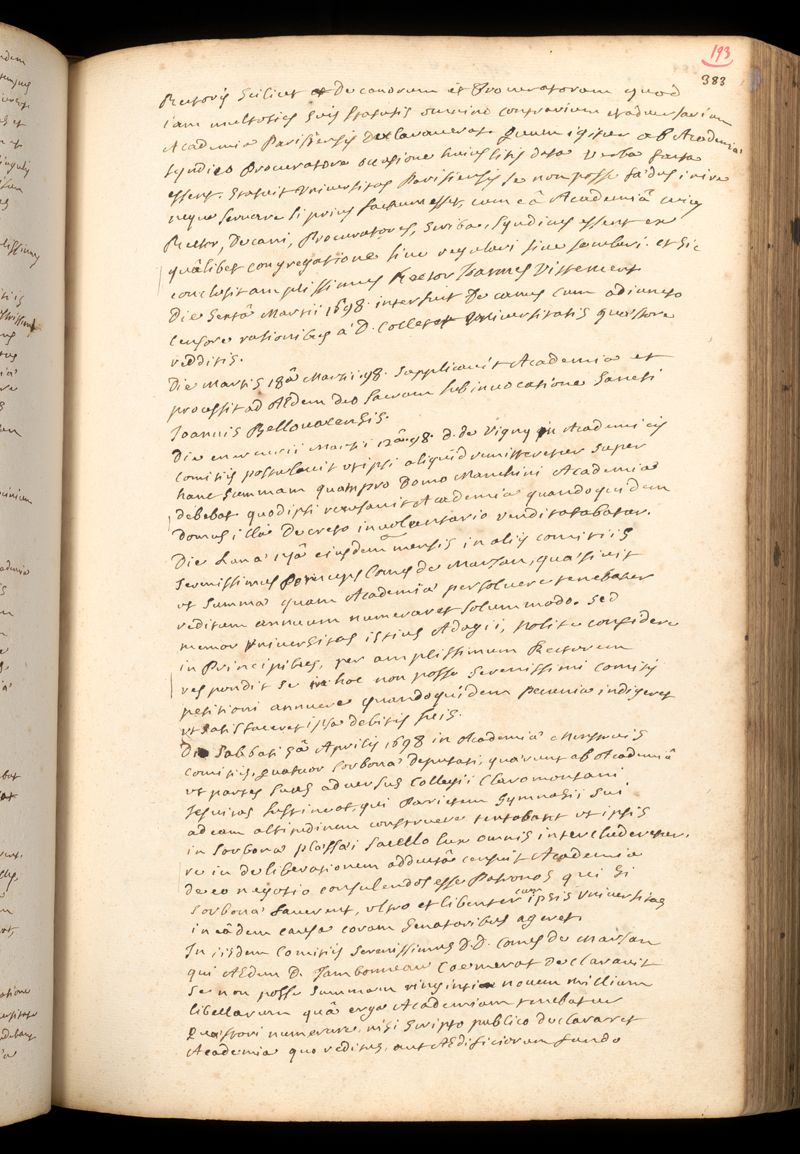 193
383
Rectoris scilicet et Decanorum et Procuratorum quod
iam multoties suis statutis omnino contrarium et adversarium
Academia Parisiensis declaraverat. Quum igitur ab Academiæ
syndico Procuratore occasione huius litis data verba facta
essent. Statuit Universitas Parisiensis se non posse fœdus inire
neque servare si prius factum esset, cum eâ Academiâ cuius
Rector, Decani, Procuratores, scribæ, syndicus essent ex
quâlibet congregatione sive regulari sive sæculari. et sic
conclusit amplissimus Rector Joannes Vittement
Die Sextâ Martii 1698. interfuit Decanus cum adiuncto
Censore rationibus a D. Collet Universitatis quæstore
redditis.
Die Martis 18â Martii 98. supplicavit Academia et
processit ad Ædem deo sacram sub invocatione Sancti
Joannis Bellovacensis.
Die mercurii Martii 98. D. de Vigny in Academicis
Comitiis postulavit ut ipsi aliquid remitteretur super
hanc summam quam pro Domo Manchini Academiæ
debebat quod ipsi recusavit Academia quandoquidem
domus illa Decreto involuntario venditabatur.
Die Lunæ ejusdem mensis in aliis comitiis
Serenissimus Princeps Comes de Marsan, quæsivit
ut summæ quam Academiæ persolvere tenebatur
reditum annuum numeraret solummodo. Sed
memor Universitas istius Adagii, Nolite confidere
in Principibus, per amplissimum Rectorem
respondit se in hoc non posse Serenissimi Comitis
petitioni annuere quandoquidem pecunia indigeret
ut satisfaceret ipsa debitis suis.
Die Sabbati 5â Aprilis 1698 in Academiæ Menstruis
comitiis, quatuor Sorbonæ deputati, quærunt ab Academiâ
ut partes suas adversus Collegii Claromontani
Jesuitas sustineat, qui Parietem Gymnasii sui
ad eam altitudinem construere tentabant ut ipsis
in Sorbonæ plessæi sacello lux omnis intercluderetur.
re in deliberationem adductâ censuit Academia
de eo negotio consulendos esse Patronos qui si
Sorbonæ faverent, ultro et libenter cum ipsis Universitas
in eâdem causa coram Senatoribus ageret.
In iisdem Comitiis Serenissimus D.D. Comes de Marsan
qui Ædem D. Jambonneau Coemerat declaravit
se non posse summam viginti novem millium
libellarum quâ erga Academiam tenebatur
Quæstori numerare, nisi scripto publico declararet
Academia quo reditus, aut Ædificiorum fundo